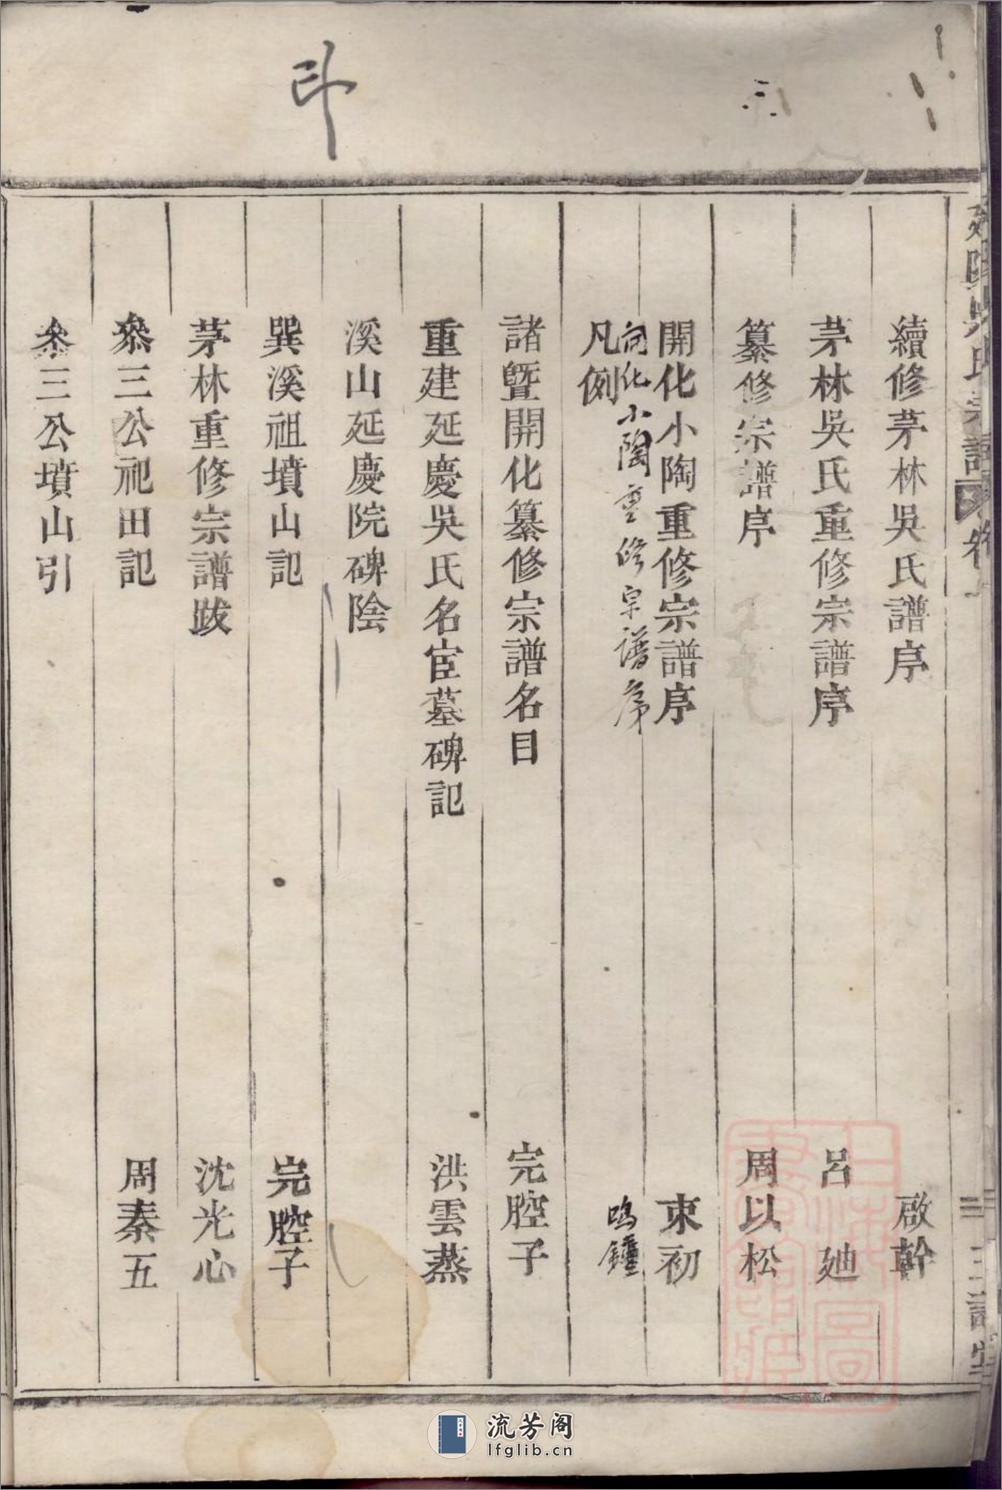 卬
續修茅林吳氏譜序 啟幹
茅林吳氏重修宗譜序 呂 廸
纂修宗譜序 周以松
開化小陶重修宗譜序 東初
開化小陶重修宗譜序 鳴鐘
凡例
諸曁開化纂修宗譜名目 完腔子
重建延慶吳氏名宦墓碑記 洪雲蒸
溪山延慶院碑陰
巽溪祖墳山記 完腔子
茅林重修宗譜跋 沈光心
叅三公祀田記 周秦五
叅三公墳山引
流芳阁
lfglib.cn